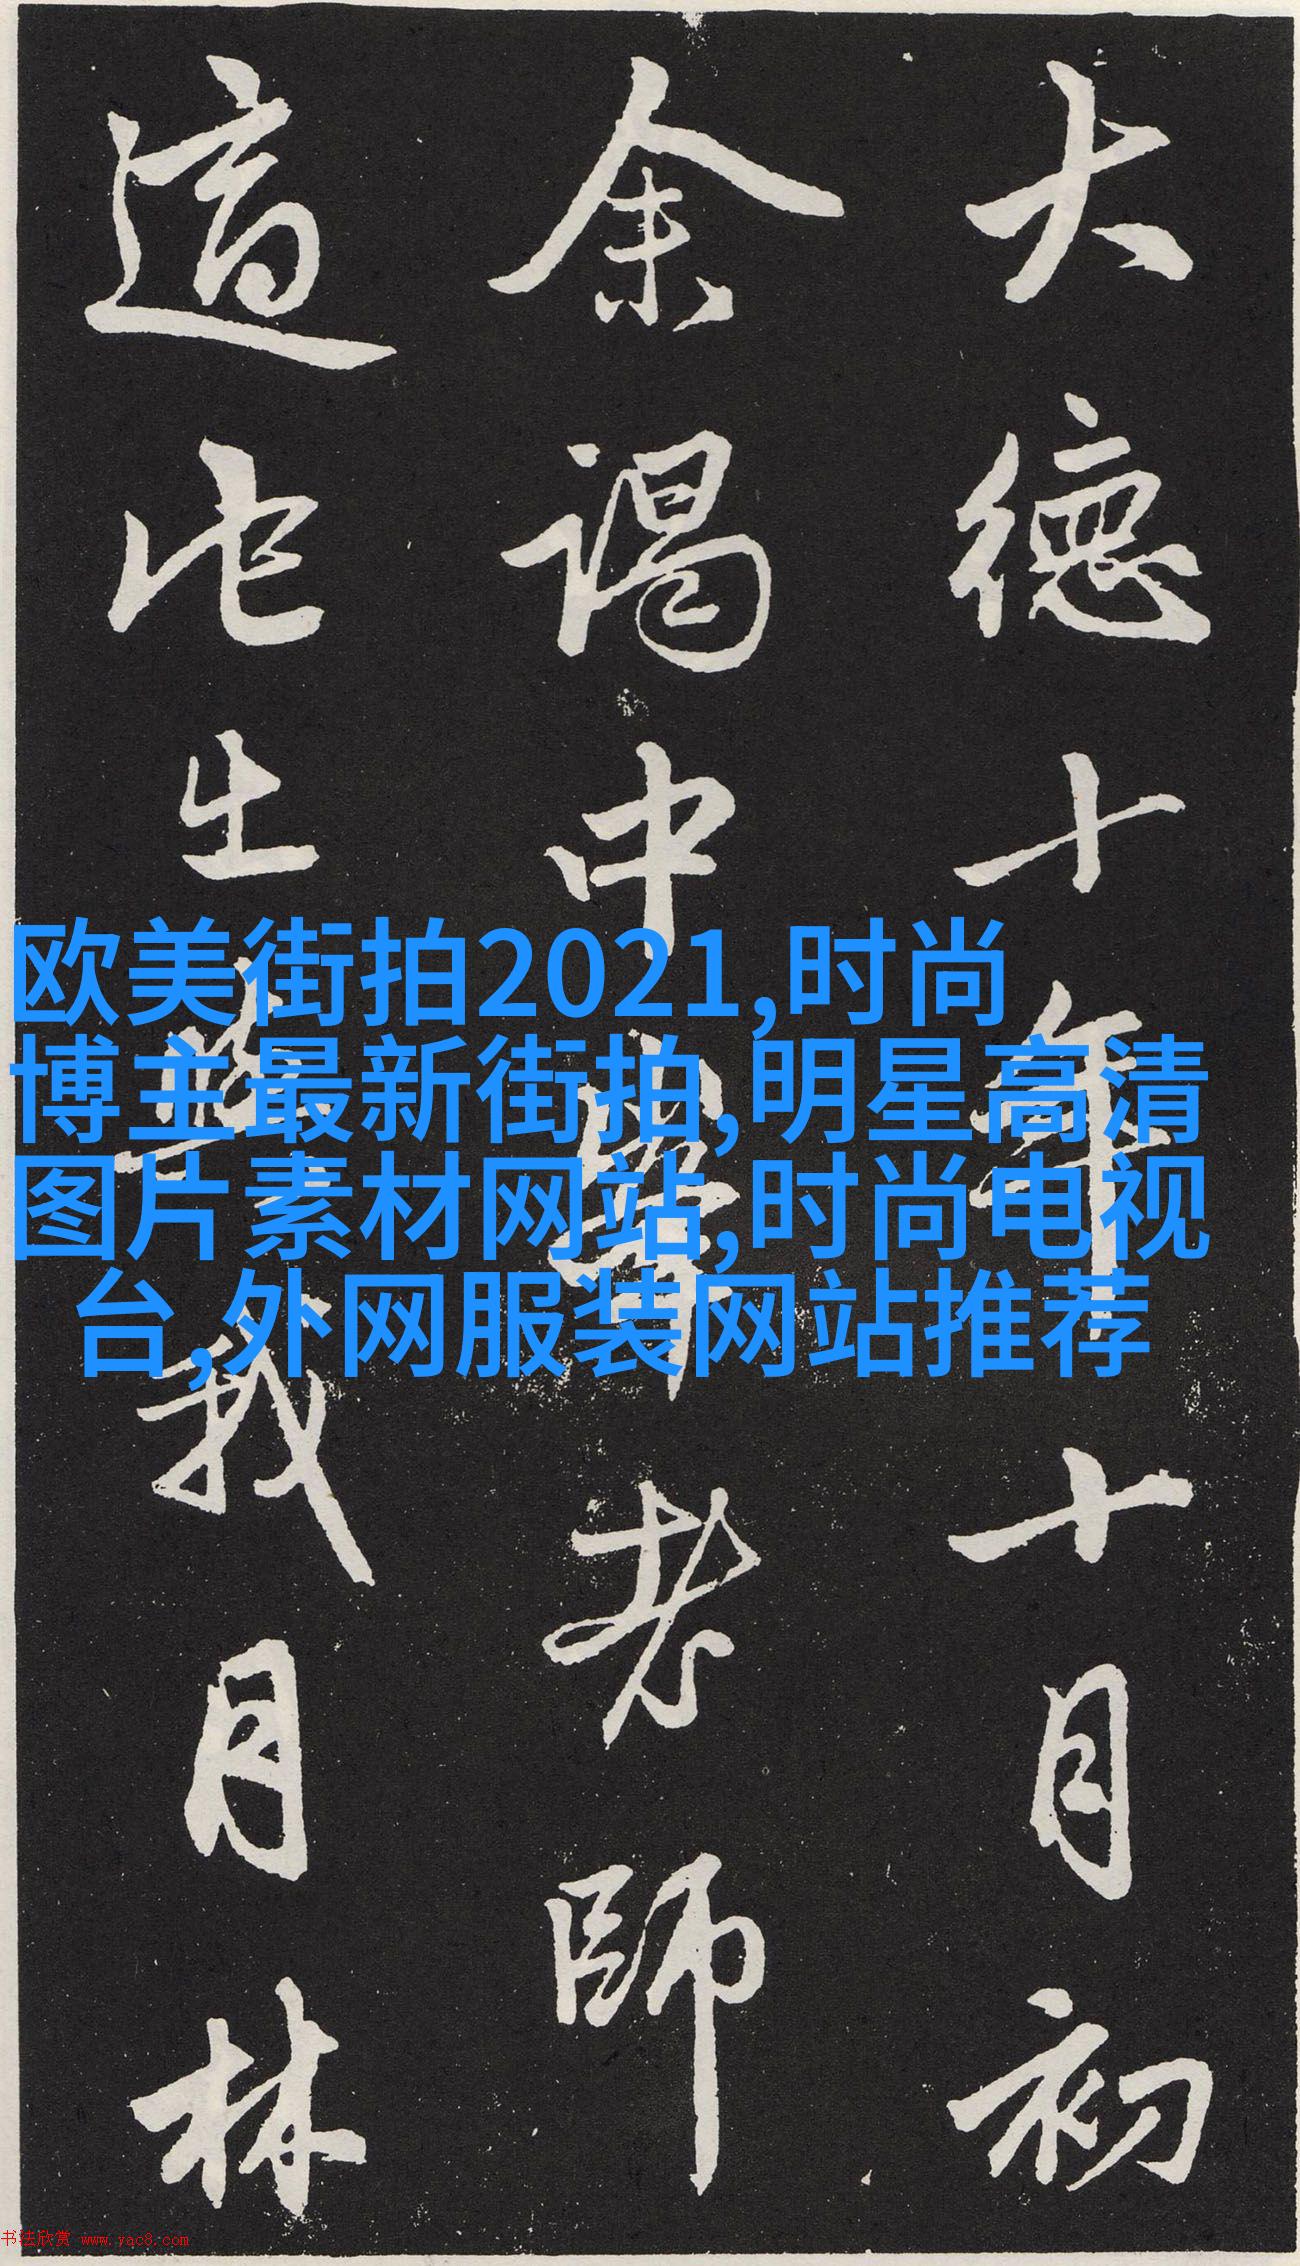 大德十年十月初
余謁中峯老師
適此出我月林
欧美街拍2021,时尚
博主最新街拍,明星高清
图片素材网站,时尚电视
台,外网服装网站推荐
书法欣赏 www.yac8.com